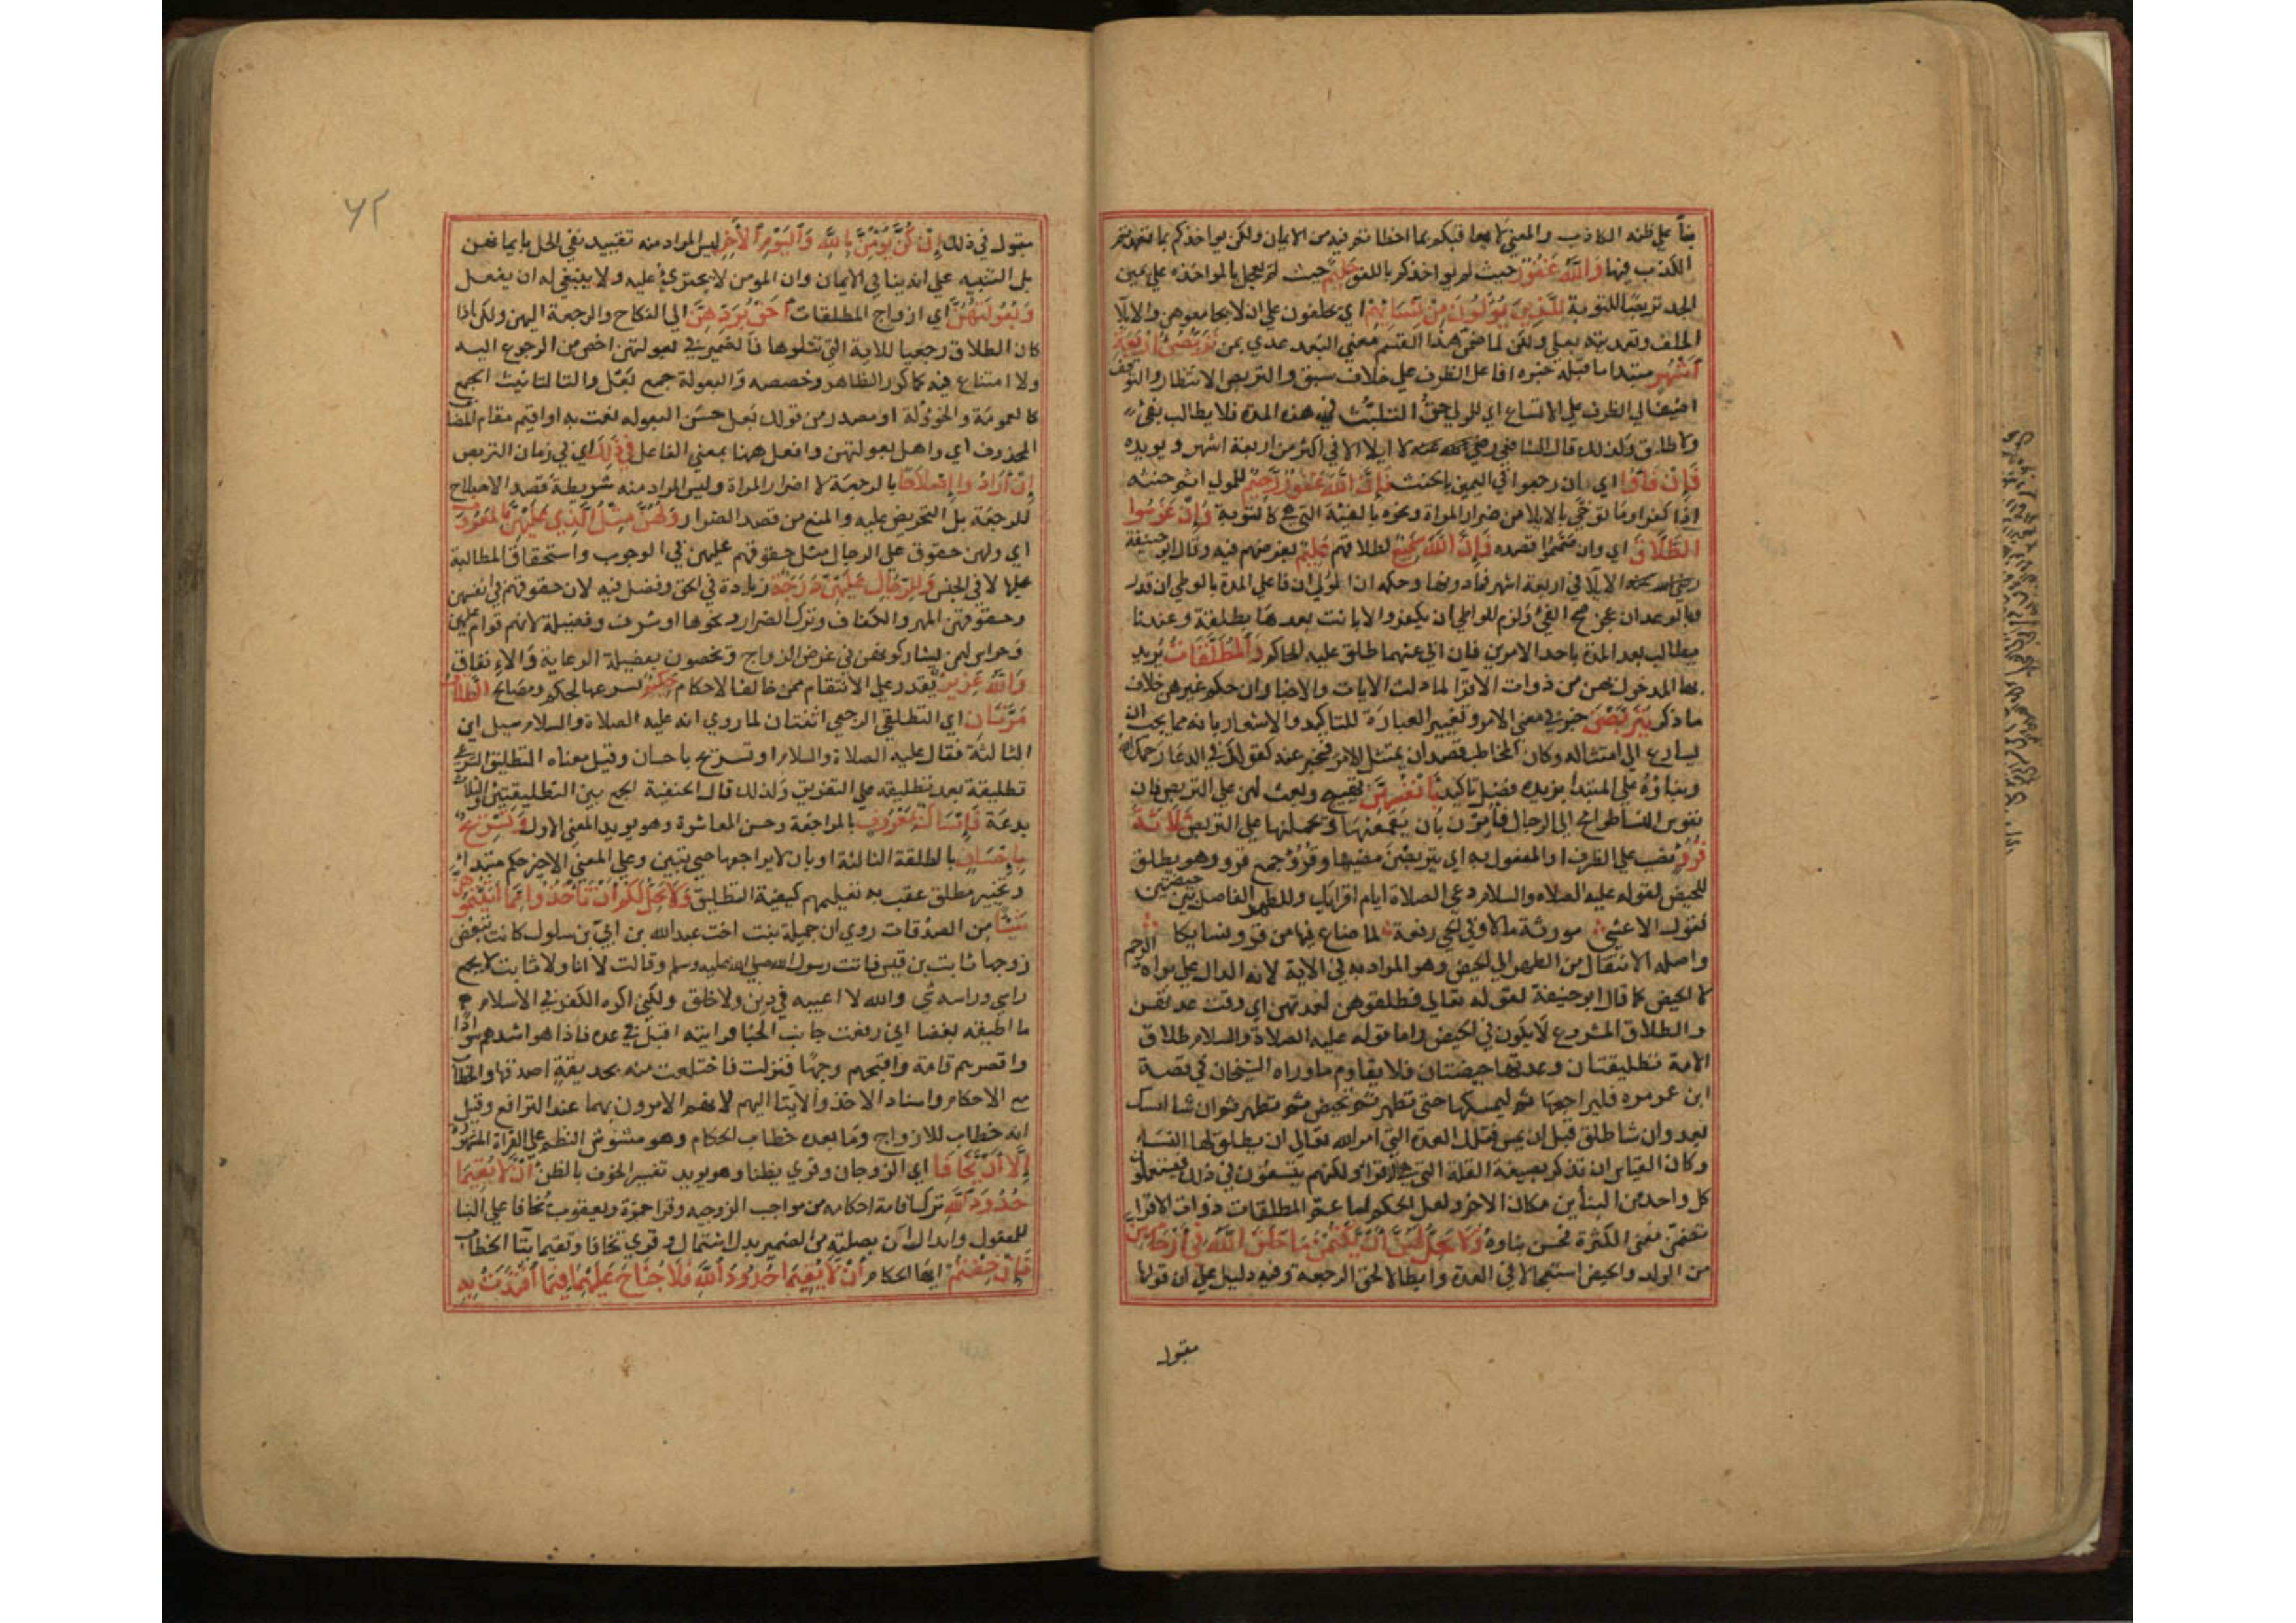 بنأ علي ظنه الكاذب والمعني لا يعاقبكم بما اخطاتم فيه من الايمان ولكن يواخذكم بما تعمدتم
الكذب فيها وَاللَّهُ غَفُورٌ حيث لم يواخذكم باللغو حَلِيمٌ حيث لم يعجل بالمواخذه علي يمين
الجد تربصا للتوبة لِلَّذِينَ يُؤْلُونَ مِنْ نِسَائِهِمْ اي يحلفون علي ان لا يجامعوهن والايلآ
الحلف وتعديته بعلي ولكن لما ضمن هذا القسم معني البعد عدي بمن تَرَبُّصُ أَرْبَعَةِ
أَشْهُرٍ مبتدا ما قبله خبره او فاعل الظرف علي خلاف سبق والتربص الانتظار والتوقف
اضيف الي الظرف علي الاتساع اي للمولي حق التلبث في هذه المدة فلا يطالب بفئ
ولا طلاق ولذلك قال الشافعي رضي الله عنه لا ايلا الا في اكثر من اربعة اشهر ويويده
فَإِنْ فَاؤُا اي ان رجعوا في اليمين بالحنث فَإِنَّ اللَّهَ غَفُورٌ رَحِيمٌ للمولي اثم حنثه
اذا كفر او ما توخي بالايلا من ضرار المراة ونحوه بالفيئة التي هي كالتوبة وَإِنْ عَزَمُوا
الطَّلَاقَ اي وان صمموا قصده فَإِنَّ اللَّهَ سَمِيعٌ لطلاقهم عَلِيمٌ بغرضهم فيه وقال ابو حنيفة
رضي الله عنه الايلا في اربعة اشهر فما دونها وحكمه ان المولي ان فا في المدة بالوطي ان قدر
وبالوعد ان عجز صح الفئ ولزم الواطي ان يكفر والا بانت بعدها بطلقة وعندنا
يطالب بعد المدة باحد الامرين فان ابي عنهما طلق عليه الحاكم وَالْمُطَلَّقَاتُ يريد
بها المدخول بهن من ذوات الاقرا لما دلت الايات والاخبار ان حكم غيرهن خلاف
ما ذكر يَتَرَبَّصْنَ خبر في معني الامر وتغيير العبارة للتاكيد والاشعار بانه مما يجب ان
يسارع الي امتثاله وكان المخاطب قصد ان يمتثل الامر فيخبر عنه كقولك في الدعا رحمك الله
وبناؤه علي المبتدا يزيده فضل تاكيد بِأَنْفُسِهِنَّ تهييج وبعث لهن علي التربص فان
نفوس النسا طوامح الي الرجال فامرن بان يقمعنها ويحملنها علي التربص ثَلَاثَةَ
قُرُوءٍ نصب علي الظرف او المفعول به اي يتربصن مضيها وقروء جمع قرو وهو يطلق
للحيض لقوله عليه الصلاه والسلام دعي الصلاة ايام اقرايك وللطهر الفاصل بين حيضتين
كقول الاعشي مورثة مالا وفي الحي رفعة لما ضاع فيها من قرو نسايكا
واصله الانتقال من الطهر الي الحيض وهو المراد به في الاية لانه الدال علي براة الرحم
لا الحيض كما قال ابو حنيفة لقوله تعالي فطلقوهن لعدتهن اي وقت عدتهن
والطلاق المشروع لا يكون في الحيض واما قوله عليه الصلاة والسلام طلاق
الامة تطليقتان وعدتها حيضتان فلا يقاوم ما رواه الشيخان في قصة
ابن عمر مره فليراجعها ثم ليمسكها حتي تطهر ثم تحيض ثم تطهر ثم ان شا امسك
بعد وان شا طلق قبل ان يمس فتلك العدة التي امر الله تعالي ان يطلق لها النسا
وكان القياس ان تذكر بصيغة القلة التي هي الاقرا ولكنهم يتسعون في ذلك فيستعملون
كل واحد من البناين مكان الاخر ولعل الحكم لما عم المطلقات ذوات الاقرا
تضمن معني الكثرة فحسن بناوه وَلَا يَحِلُّ لَهُنَّ أَنْ يَكْتُمْنَ مَا خَلَقَ اللَّهُ فِي أَرْحَامِهِنَّ
من الولد والحيض استعجالا في العدة وابطالا لحق الرجعة وفيه دليل علي ان قولها
مقبول
٦٢
مقبول في ذلك إِنْ كُنَّ يُؤْمِنَّ بِاللَّهِ وَالْيَوْمِ الْآخِرِ ليس المراد منه تقييد نفي الحل بايمانهن
بل التنبيه علي انه ينافي الايمان وان المومن لا يجتري عليه ولا ينبغي له ان يفعل
وَبُعُولَتُهُنَّ اي ازواج المطلقات أَحَقُّ بِرَدِّهِنَّ الي النكاح والرجعة اليهن ولكن اذا
كان الطلاق رجعيا للاية التي تتلوها فالضمير في بعولتهن اخص من المرجوع اليه
ولا امتناع فيه كما كرر الظاهر وخصصه والبعولة جمع بعل والتا لتانيث الجمع
كالعمومة والخوولة او مصدر من قولك بعل حسن البعولة نعت به او اقيم مقام المضاف
المحذوف اي واهل بعولتهن وافعل ههنا بمعني الفاعل فِي ذَلِكَ اي في زمان التربص
إِنْ أَرَادُوا إِصْلَاحًا بالرجعة لا اضرار المراة وليس المراد منه شريطة قصد الاصلاح
للرجعة بل التحريض عليه والمنع من قصد الضرار وَلَهُنَّ مِثْلُ الَّذِي عَلَيْهِنَّ بِالْمَعْرُوفِ
اي ولهن حقوق علي الرجال مثل حقوقهم عليهن في الوجوب واستحقاق المطالبة
عليها لا في الجنس وَلِلرِّجَالِ عَلَيْهِنَّ دَرَجَةٌ زيادة في الحق وفضل فيه لان حقوقهم في انفسهن
وحقوقهن المهر والكفاف وترك الضرار ونحوها او شرف وفضيلة لانهم قوام عليهن
وحراس لهن يشاركوهن في غرض الزواج ويخصون بفضيلة الرعاية والانفاق
وَاللَّهُ عَزِيزٌ يقدر علي الانتقام ممن خالف الاحكام حَكِيمٌ يشرعها لحكم ومصالح الطَّلَاقُ
مَرَّتَانِ اي التطليق الرجعي اثنتان لما روي انه عليه الصلاة والسلام سيل اين
الثالثة فقال عليه الصلاة والسلام او تسريح باحسان وقيل معناه التطليق الشرعي
تطليقة بعد تطليقه علي التفريق ولذلك قال الحنفية الجمع بين التطليقتين والثلاث
بدعة فَإِمْسَاكٌ بِمَعْرُوفٍ بالمراجعة وحسن المعاشرة وهو يويد المعني الاول أَوْ تَسْرِيحٌ
بِإِحْسَانٍ بالطلقة الثالثة او بان لا يراجعها حتي تبين وعلي المعني الاخير حكم مبتدا
وتخيير مطلق عقب به تعليمهم كيفية التطليق وَلَا يَحِلُّ لَكُمْ أَنْ تَأْخُذُوا مِمَّا آتَيْتُمُوهُنَّ
شَيْئًا من الصدقات روي ان جميلة بنت اخت عبدالله بن ابي بن سلول كانت تبغض
زوجها ثابت بن قيس فاتت رسول الله صلي الله عليه وسلم وقالت لا انا ولا ثابت لا يجمع
راسي وراسه شي والله لا اعيبه في دين ولا خلق ولكني اكره الكفر في الاسلام
ما اطيقه بغضا اني رفعت جانب الخبا فرايته اقبل في عدة فاذا هو اشدهم سوادا
واقصرهم قامة واقبحهم وجها فنزلت فاختلعت منه بحديقة اصدقها والخطاب
مع الاحكام واسناد الاخذ والايتا اليهم لانهم الامرون بهما عند الترافع وقيل
انه خطاب للازواج وما بعده خطاب الحكام وهو مشوش النظم علي القراة المشهورة
إِلَّا أَنْ يَخَافَا اي الزوجان وقري يظنا وهو يويد تفسير الخوف بالظن أَنْ لَا يُقِيمَا
حُدُودَ اللَّهِ ترك اقامة احكامه من مواجب الزوجيه وقرا حمزة ويعقوب يُخافا علي البنا
للمفعول وابدال ان بصلته من الضمير بدل اشتمال وقري تخافا وتقيما بتا الخطاب
فَإِنْ خِفْتُمْ ايها الحكام أَنْ لَا يُقِيمَا حُدُودَ اللَّهِ فَلَا جُنَاحَ عَلَيْهِمَا فِيمَا افْتَدَتْ بِهِ